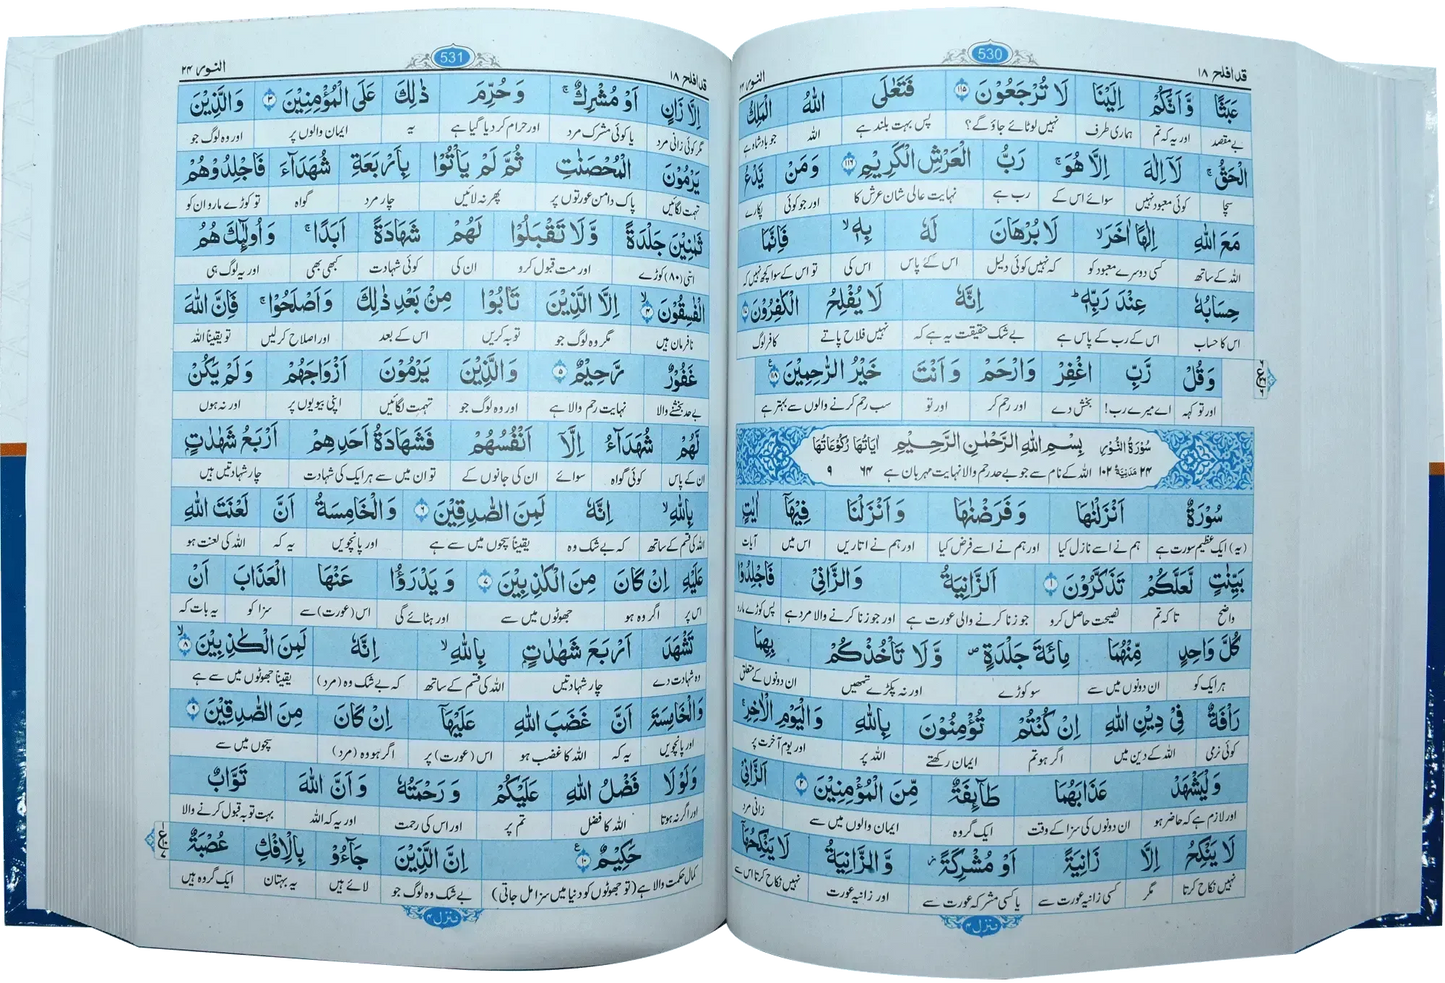 قد افلح ١٨
530
النور ٢٤
عَبَثًا وَّاَنَّكُمْ اِلَيْنَا لَا تُرْجَعُوْنَ ١١٥ فَتَعٰلَى اللّٰهُ الْمَلِكُ
بے مقصد اور یہ کہ تم ہماری طرف نہیں لوٹائے جاؤ گے؟ پس بہت بلند ہے اللہ جو بادشاہ ہے
الْحَقُّ ۚ لَاۤ اِلٰهَ اِلَّا هُوَ ۚ رَبُّ الْعَرْشِ الْكَرِيْمِ ١١٦ وَمَنْ يَّدْعُ
سچا کوئی معبود نہیں سوائے اس کے رب ہے نہایت عالی شان عرش کا اور جو کوئی پکارے
مَعَ اللّٰهِ اِلٰهًا اٰخَرَ ۙ لَا بُرْهَانَ لَهٗ بِهٖ ۙ فَاِنَّمَا
اللہ کے ساتھ کسی دوسرے معبود کو کہ نہیں کوئی دلیل اس کے پاس اس کی تو اس کے سوا کچھ نہیں کہ
حِسَابُهٗ عِنْدَ رَبِّهٖ ؕ اِنَّهٗ لَا يُفْلِحُ الْكٰفِرُوْنَ
اس کا حساب اس کے رب کے پاس ہے بے شک حقیقت یہ ہے کہ نہیں فلاح پاتے کافر لوگ
وَقُلْ رَّبِّ اغْفِرْ وَارْحَمْ وَاَنْتَ خَيْرُ الرّٰحِمِيْنَ ١١٨
اور تو کہہ اے میرے رب! بخش دے اور رحم کر اور تو سب رحم کرنے والوں سے بہتر ہے
سُوْرَةُ النُّوْرِ بِسْمِ اللّٰهِ الرَّحْمٰنِ الرَّحِيْمِ اٰيَاتُهَا رُكُوْعَاتُهَا
٢٤ مَدَنِيَّةٌ ١٠٢ اللہ کے نام سے جو بے حد رحم والا نہایت مہربان ہے ٦٤ ٩
سُوْرَةٌ اَنْزَلْنٰهَا وَفَرَضْنٰهَا وَاَنْزَلْنَا فِيْهَاۤ اٰيٰتٍۭ
(یہ) ایک عظیم سورت ہے ہم نے اسے نازل کیا اور ہم نے اسے فرض کیا اور ہم نے اتاریں اس میں آیات
بَيِّنٰتٍ لَّعَلَّكُمْ تَذَكَّرُوْنَ ١ اَلزَّانِيَةُ وَالزَّانِيْ فَاجْلِدُوْا
واضح تاکہ تم نصیحت حاصل کرو جو زنا کرنے والی عورت ہے اور جو زنا کرنے والا مرد ہے پس کوڑے مارو
كُلَّ وَاحِدٍ مِّنْهُمَا مِائَةَ جَلْدَةٍ ۪ وَّلَا تَاْخُذْكُمْ بِهِمَا
ہر ایک کو ان دونوں میں سے سو کوڑے اور نہ پکڑے تمہیں ان دونوں کے متعلق
رَاْفَةٌ فِيْ دِيْنِ اللّٰهِ اِنْ كُنْتُمْ تُؤْمِنُوْنَ بِاللّٰهِ وَالْيَوْمِ الْاٰخِرِ ۚ
کوئی نرمی اللہ کے دین میں اگر ہو تم ایمان رکھتے اللہ پر اور یوم آخرت پر
وَلْيَشْهَدْ عَذَابَهُمَا طَآئِفَةٌ مِّنَ الْمُؤْمِنِيْنَ ٢ اَلزَّانِيْ
اور لازم ہے کہ حاضر ہو ان دونوں کی سزا کے وقت ایک گروہ ایمان والوں میں سے زانی مرد
لَا يَنْكِحُ اِلَّا زَانِيَةً اَوْ مُشْرِكَةً ۡ وَّالزَّانِيَةُ لَا يَنْكِحُهَاۤ
نہیں نکاح کرتا مگر کسی زانیہ عورت سے یا کسی مشرکہ عورت سے اور زانیہ عورت نہیں نکاح کرتا اس سے
منزل ٤
قد افلح ١٨
531
النور ٢٤
اِلَّا زَانٍ اَوْ مُشْرِكٌ ۚ وَحُرِّمَ ذٰلِكَ عَلَى الْمُؤْمِنِيْنَ ٣ وَالَّذِيْنَ
مگر کوئی زانی مرد یا کوئی مشرک مرد اور حرام کر دیا گیا ہے یہ ایمان والوں پر اور وہ لوگ جو
يَرْمُوْنَ الْمُحْصَنٰتِ ثُمَّ لَمْ يَاْتُوْا بِاَرْبَعَةِ شُهَدَآءَ فَاجْلِدُوْهُمْ
تہمت لگائیں پاک دامن عورتوں پر پھر نہ لائیں چار مرد گواہ تو کوڑے مارو ان کو
ثَمٰنِيْنَ جَلْدَةً وَّلَا تَقْبَلُوْا لَهُمْ شَهَادَةً اَبَدًا ۚ وَاُولٰٓئِكَ هُمُ
اسّی (٨٠) کوڑے اور مت قبول کرو ان کی کوئی شہادت کبھی بھی اور یہ لوگ ہی
الْفٰسِقُوْنَ ٤ اِلَّا الَّذِيْنَ تَابُوْا مِنْۢ بَعْدِ ذٰلِكَ وَاَصْلَحُوْا ۚ فَاِنَّ اللّٰهَ
نافرمان ہیں مگر وہ لوگ جو توبہ کریں اس کے بعد اور اصلاح کرلیں تو یقیناً اللہ
غَفُوْرٌ رَّحِيْمٌ ٥ وَالَّذِيْنَ يَرْمُوْنَ اَزْوَاجَهُمْ وَلَمْ يَكُنْ
بے حد بخشنے والا نہایت رحم والا ہے اور وہ لوگ جو تہمت لگائیں اپنی بیویوں پر اور نہ ہوں
لَّهُمْ شُهَدَآءُ اِلَّاۤ اَنْفُسُهُمْ فَشَهَادَةُ اَحَدِهِمْ اَرْبَعُ شَهٰدٰتٍۭ
ان کے پاس کوئی گواہ سوائے ان کی جانوں کے تو ان میں سے ہر ایک کی شہادت چار شہادتیں ہیں
بِاللّٰهِ ۙ اِنَّهٗ لَمِنَ الصّٰدِقِيْنَ ٦ وَالْخَامِسَةُ اَنَّ لَعْنَتَ اللّٰهِ
اللہ کی قسم کے ساتھ کہ بے شک وہ یقیناً سچوں میں سے ہے اور پانچویں یہ کہ اللہ کی لعنت ہو
عَلَيْهِ اِنْ كَانَ مِنَ الْكٰذِبِيْنَ ٧ وَيَدْرَؤُا عَنْهَا الْعَذَابَ اَنْ
اس پر اگر وہ ہو جھوٹوں میں سے اور ہٹائے گی اس (عورت) سے سزا کو یہ بات کہ
تَشْهَدَ اَرْبَعَ شَهٰدٰتٍۭ بِاللّٰهِ ۙ اِنَّهٗ لَمِنَ الْكٰذِبِيْنَ ٨
وہ شہادت دے چار شہادتیں اللہ کی قسم کے ساتھ کہ بے شک وہ (مرد) یقیناً جھوٹوں میں سے ہے
وَالْخَامِسَةَ اَنَّ غَضَبَ اللّٰهِ عَلَيْهَاۤ اِنْ كَانَ مِنَ الصّٰدِقِيْنَ ٩
اور پانچویں یہ کہ اللہ کا غضب ہو اس (عورت) پر اگر ہو وہ (مرد) سچوں میں سے
وَلَوْلَا فَضْلُ اللّٰهِ عَلَيْكُمْ وَرَحْمَتُهٗ وَاَنَّ اللّٰهَ تَوَّابٌ
اور اگر نہ ہوتا اللہ کا فضل تم پر اور اس کی رحمت اور یہ کہ اللہ بہت توبہ قبول کرنے والا
حَكِيْمٌ ١٠ اِنَّ الَّذِيْنَ جَآءُوْ بِالْاِفْكِ عُصْبَةٌ
کمال حکمت والا ہے (تو جھوٹوں کو دنیا میں سزا مل جاتی) بے شک وہ لوگ جو لائے ہیں یہ بہتان ایک گروہ ہیں
منزل ٤